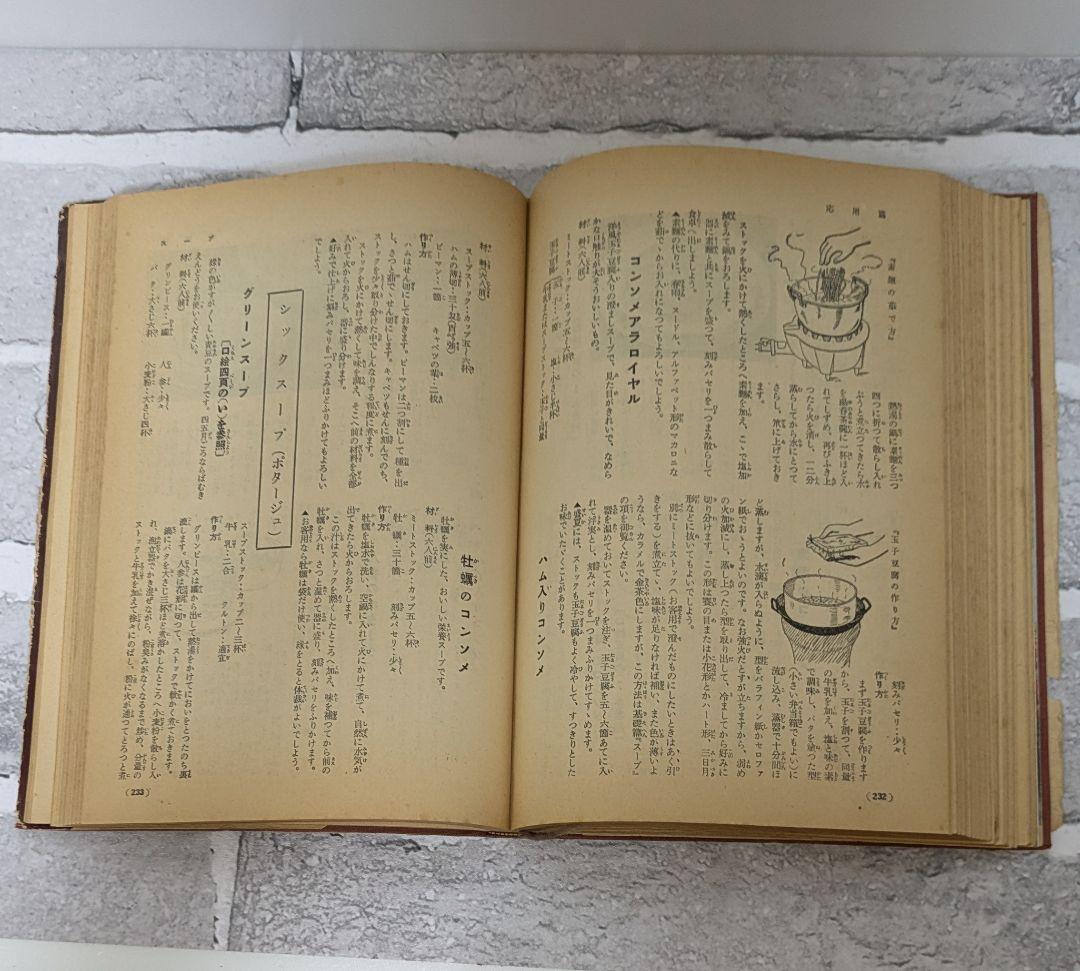 応用篇
『素麺の茹で方』
熱湯の鍋に素麺を三つ
四つに折つて散らし入れ
ぶうと煮立つてきたら水
を湯呑茶碗に一杯ほど入
れてしずめ、再びふき上
つたら火を消し、一二分
蒸らしてから水にとつて
さらし、笊に上げておき
ます。
ストックを火にかけて熱くしたところへ素麺を加え、ここで塩加
減をみて鍋をおろします。
器に素麺と共にスープを盛つて、刻みパセリを一つまみ散らして
食卓へ出しましよう。
▲素麺の代りに、春雨、ヌードル、アルファベット形のマカロニな
どを茹でゝからお入れになつてもよろしいでしよう。
コンソメアラロイヤル
洋風玉子豆腐入りの澄ましスープで、見た目がきれいで、なめら
かな口触りが大そうおいしいもの。
材料(六人前)
ミートストック・カップ五〜六杯
『玉子豆腐の作り方』
刻みパセリ・少々
作り方
まず玉子豆腐を作ります
から、玉子を割つて、同量
の牛乳を加え、塩と味の素
で調味し、バタを塗つた型
(小さい弁当箱でもよい)に
流し込み、蒸器で十分間ほ
ど蒸しますが、水滴が入らぬように、型をパラフィン紙かセロファ
ン紙でおゝうとよいのです。なお強火だとすが立ちますから、弱め
の火加減にし、蒸し上つたら型を取り出して、冷ましてから好みに
切り分けます。この形は賽の目または小花形とかハート形、三日月
形などに抜いてもよいでしよう。
別にミートストック(お客用で澄んだものにしたいときはあく引
きをする)を煮立て、塩味が足りなければ補い、また色が薄いよ
うなら、カラメルで金茶色にしますが、この方法は基礎篇『スープ』
の項を御覧ください。
器を温めておいてストックを注ぎ、玉子豆腐を五〜六箇あてに入
れて浮実とし、刻みパセリを一つまみふりかけてすゝめます。
▲盛夏には、ストックも玉子豆腐もよく冷やして、すつきりとした
お味でいたゞくことがあります。
ハム入りコンソメ
(232)
材料(六人前)
スープストック・カップ五〜六杯
ピーマン・一箇
キャベツの葉・二枚
作り方
ハムはせん切にしておきます。ピーマンは二つ割にして種を出
し、さつと茹でゝせん切にします。キャベツもせんに刻んでのち、
ストックを少々取り分けた中でしんなりする程度に煮ます。
ストックを火にかけて熱くして味を調え、そこへ前の材料を全部
入れて火からおろし、器に盛り分けます。
▲好みで仕上げに刻みパセリを一つまみほどふりかけてもよろしい
でしよう。
シックスープ(ポタージュ)
グリーンスープ
〔口絵四頁の(い)を参照〕
緑の色もすがくしい青豆のスープです。四五月ごろならばむき
えんどうをお使いください。
材料(六人前)
グリンピース・一鑵
人参・少々
バタ・大さじ六杯
小麦粉・大さじ四杯
牡蠣のコンソメ
牡蠣を実にした、おいしい栄養スープです。
材料(六人前)
ミートストック・カップ五〜六杯
牡蠣・三十箇
刻みパセリ・少々
作り方
牡蠣を塩水で洗い、空鍋に入れて火にかけて煮て、自然に水気が
出てきたら火からおろします。
この汁はストックを熱くしたところへ加え、味を補つてから前の
牡蠣を入れ、さつと温めて器に盛り、刻みパセリをふりかけます。
▲お客用なら牡蠣は袋だけ使い、縁をとると体裁がよいでしよう。
スープストック・カップ二〜三杯
牛乳・二合
クルトン・適宜
作り方
グリンピースは鑵から出して熱湯をかけてにおいをとつたのち裏
漉します。人参は花形に切つて、ストックで軟かく煮ておきます。
鍋にバタを大さじ三杯ほど煮溶かしたところへ小麦粉を散らし入
れ、泡立器でかき混ぜながら、粉臭みがなくなるまで炒め、分量の
ストックと牛乳を加えて徐々にのばし、粉に火が通つてとろつと煮
(233)